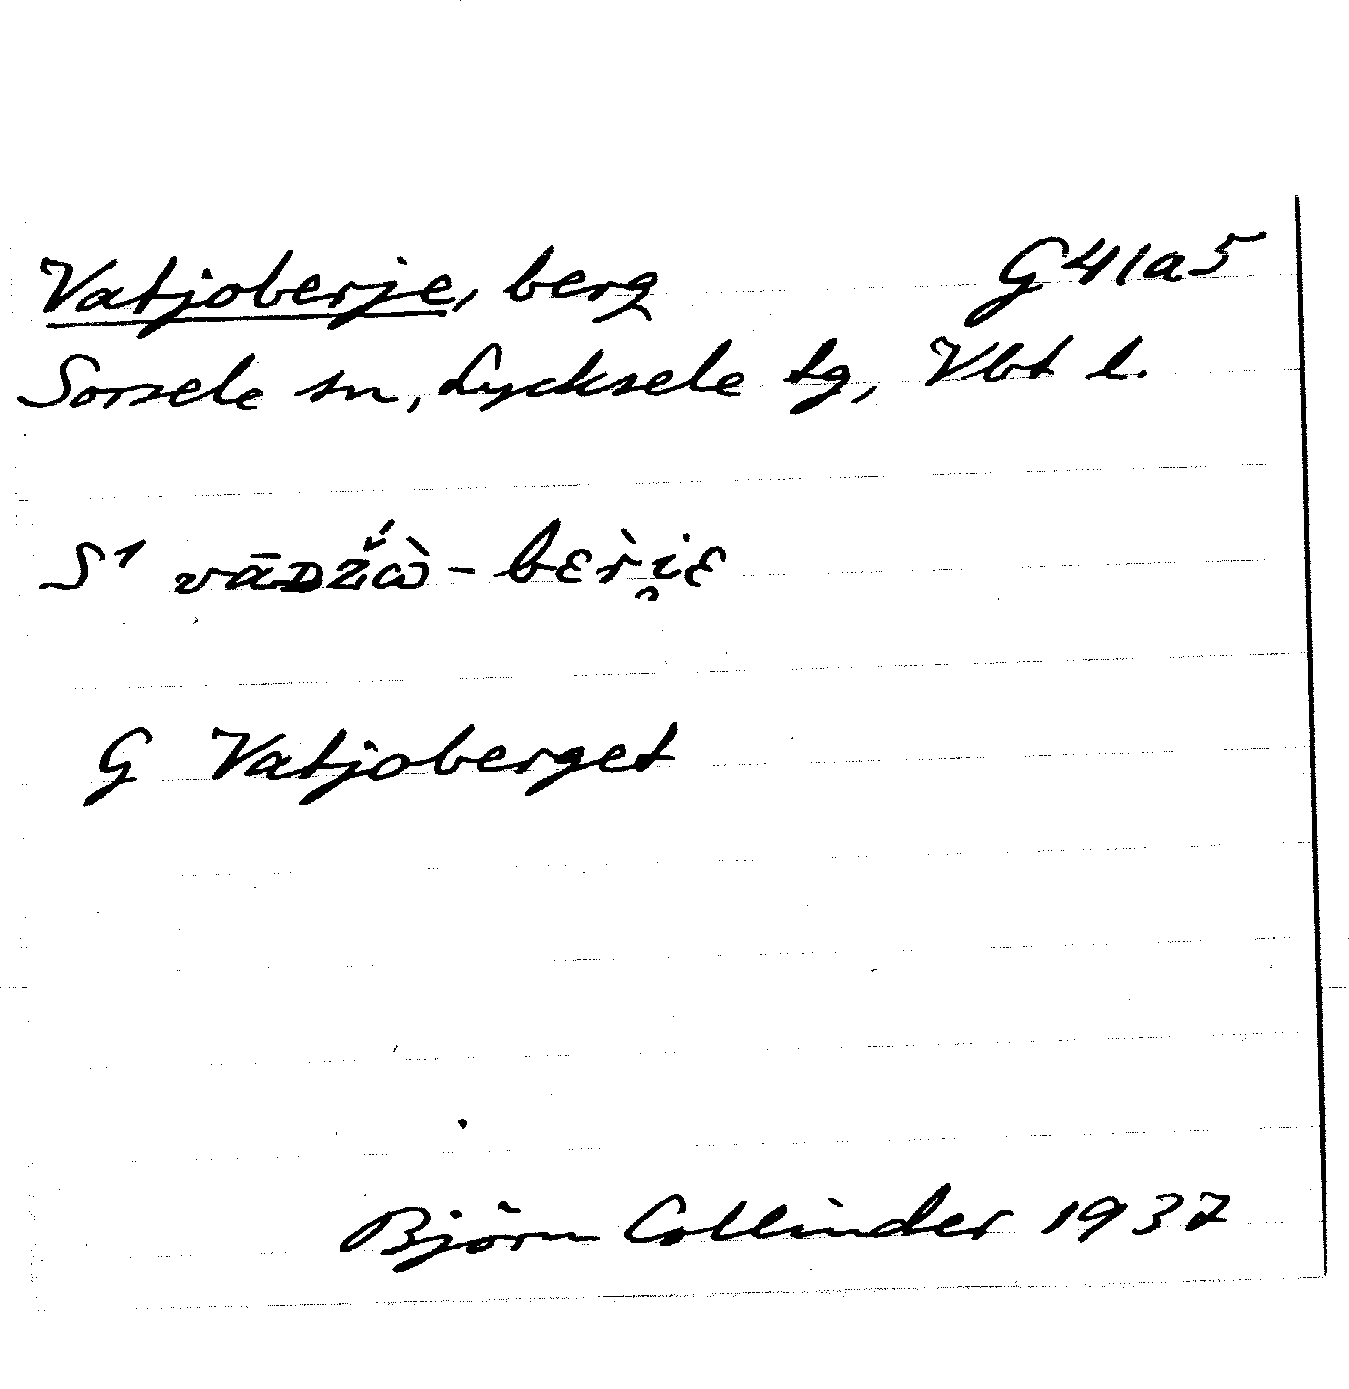 Vatjoberje, berg G41a5
Sorsele sn, Lycksele tg, Vbt l.
S1 vāᴅž́ὼ - bɛr̀i̯ɛ
G Vatjoberget
Björn Collinder 1937